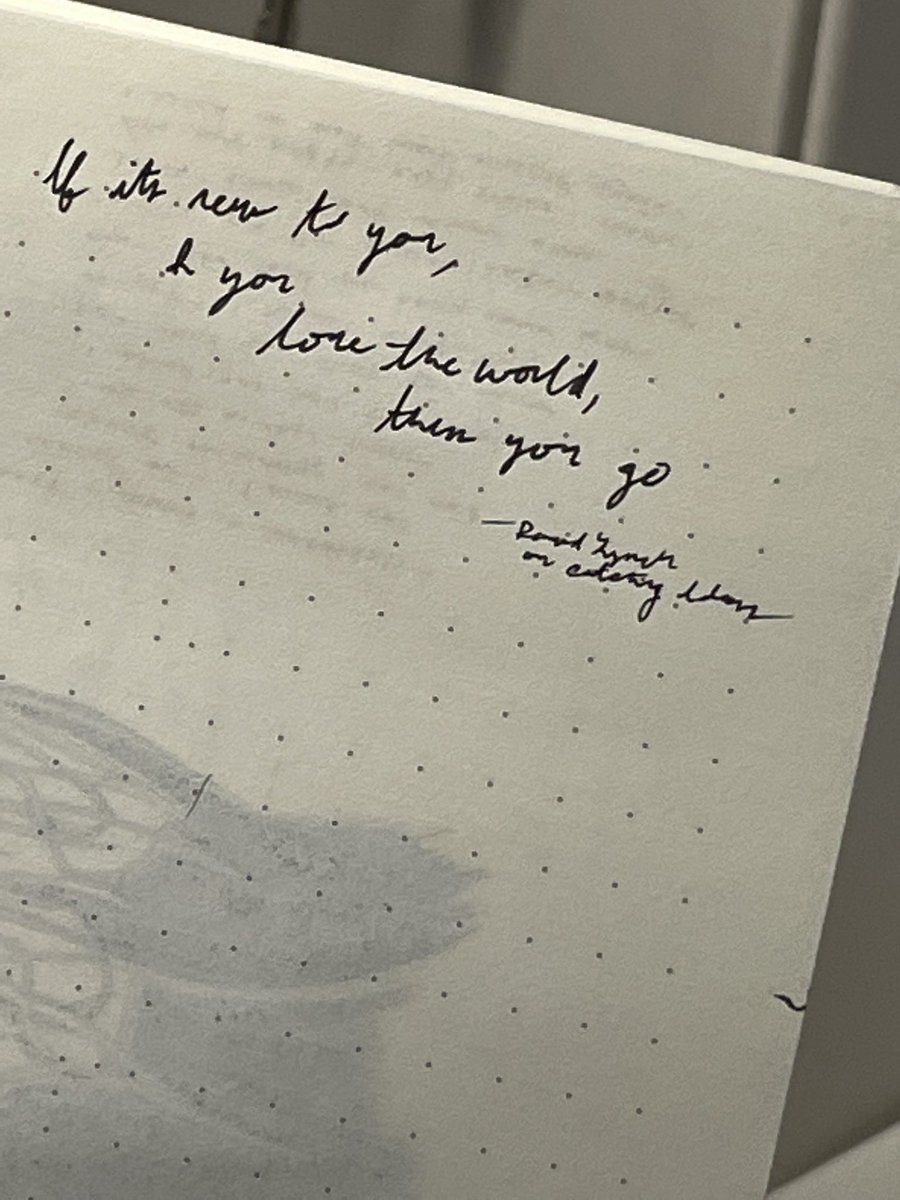 If its new to you,
& you
love the world,
then you go
— David Lynch
on catching Ideas